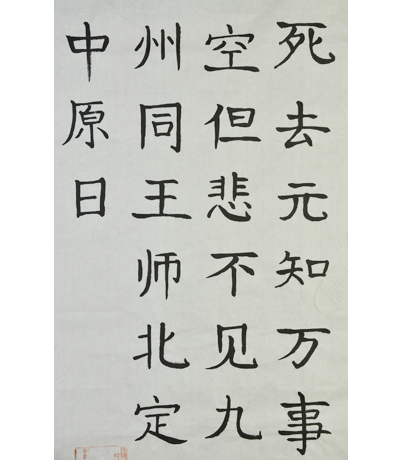 死去元知万事
空但悲不见九
州同王师北定
中原日